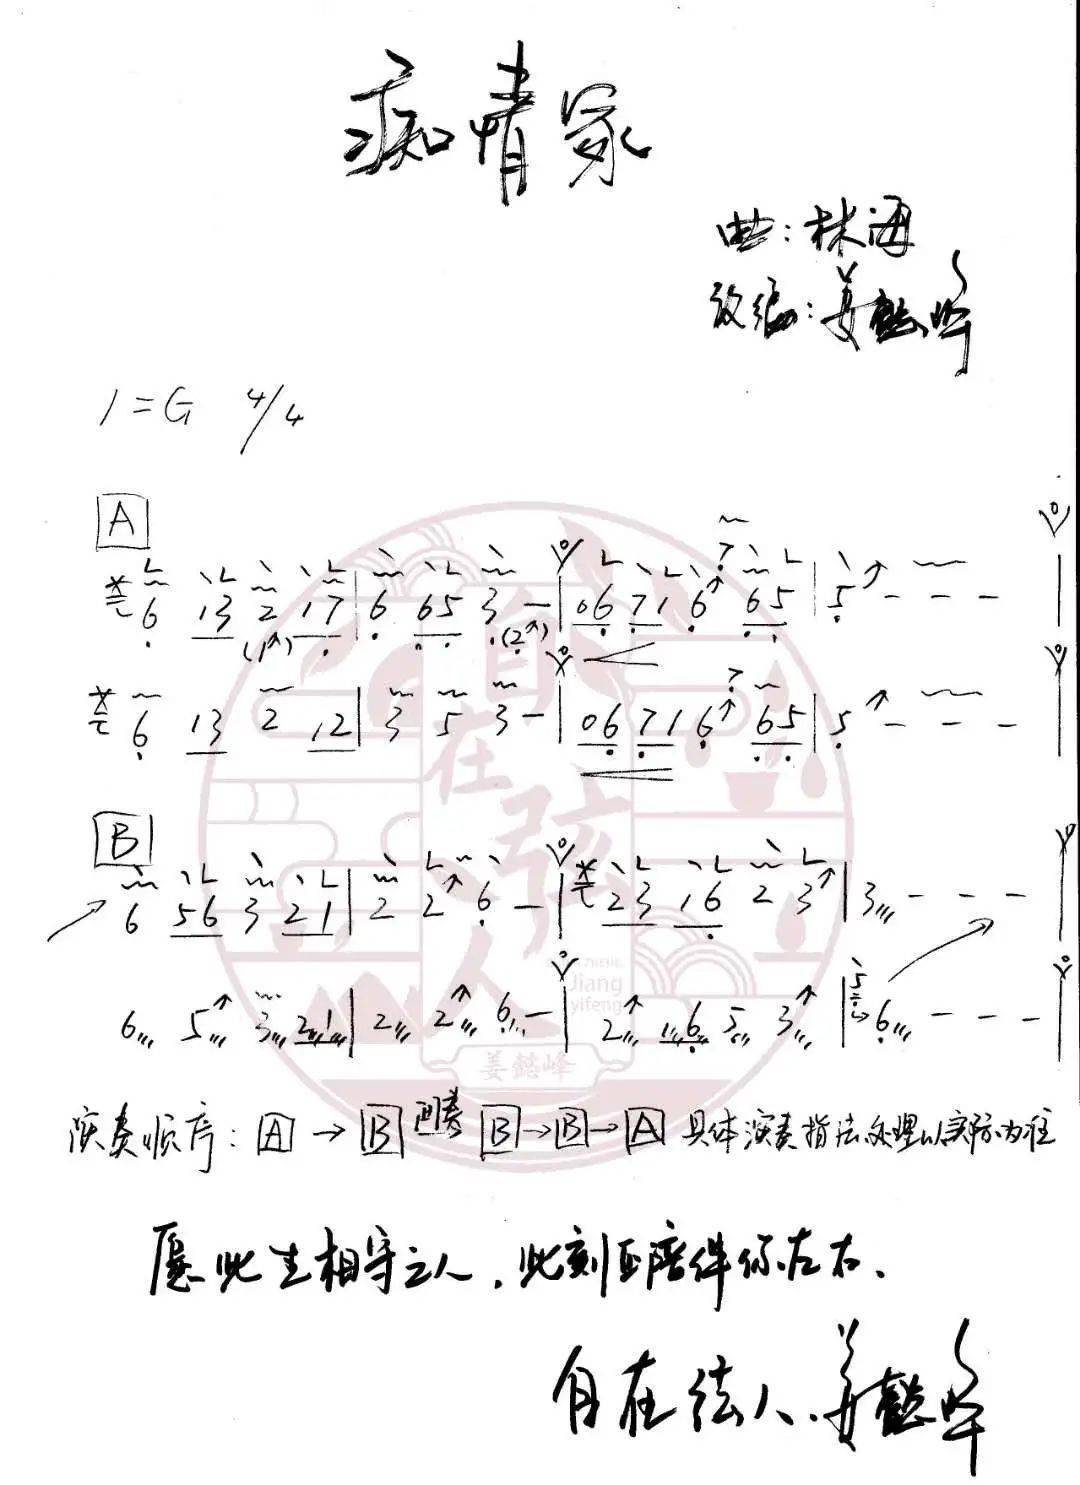 痴情冢
曲：林海
改编：姜懿峰
1=G 4/4
A
6 13 2 17 | 6 65 3 — | 06 71 6 65 | 5 — — —
(1) (2)
6 13 2 12 | 3 5 3 — | 06 71 6 65 | 5 — — —
B
6 56 3 21 | 2 2 6 — | 23 16 2 3 | 3 — — —
6 5 3 21 | 2 2 6 — | 2 16 5 3 | 5 6 — — —
演奏顺序：A → B 间奏 B → B → A 具体演奏指法处理以实际为准
愿此生相守之人，此刻正陪伴你左右。
自在弦人.姜懿峰
自在弦人
Jiang
yifeng
姜懿峰